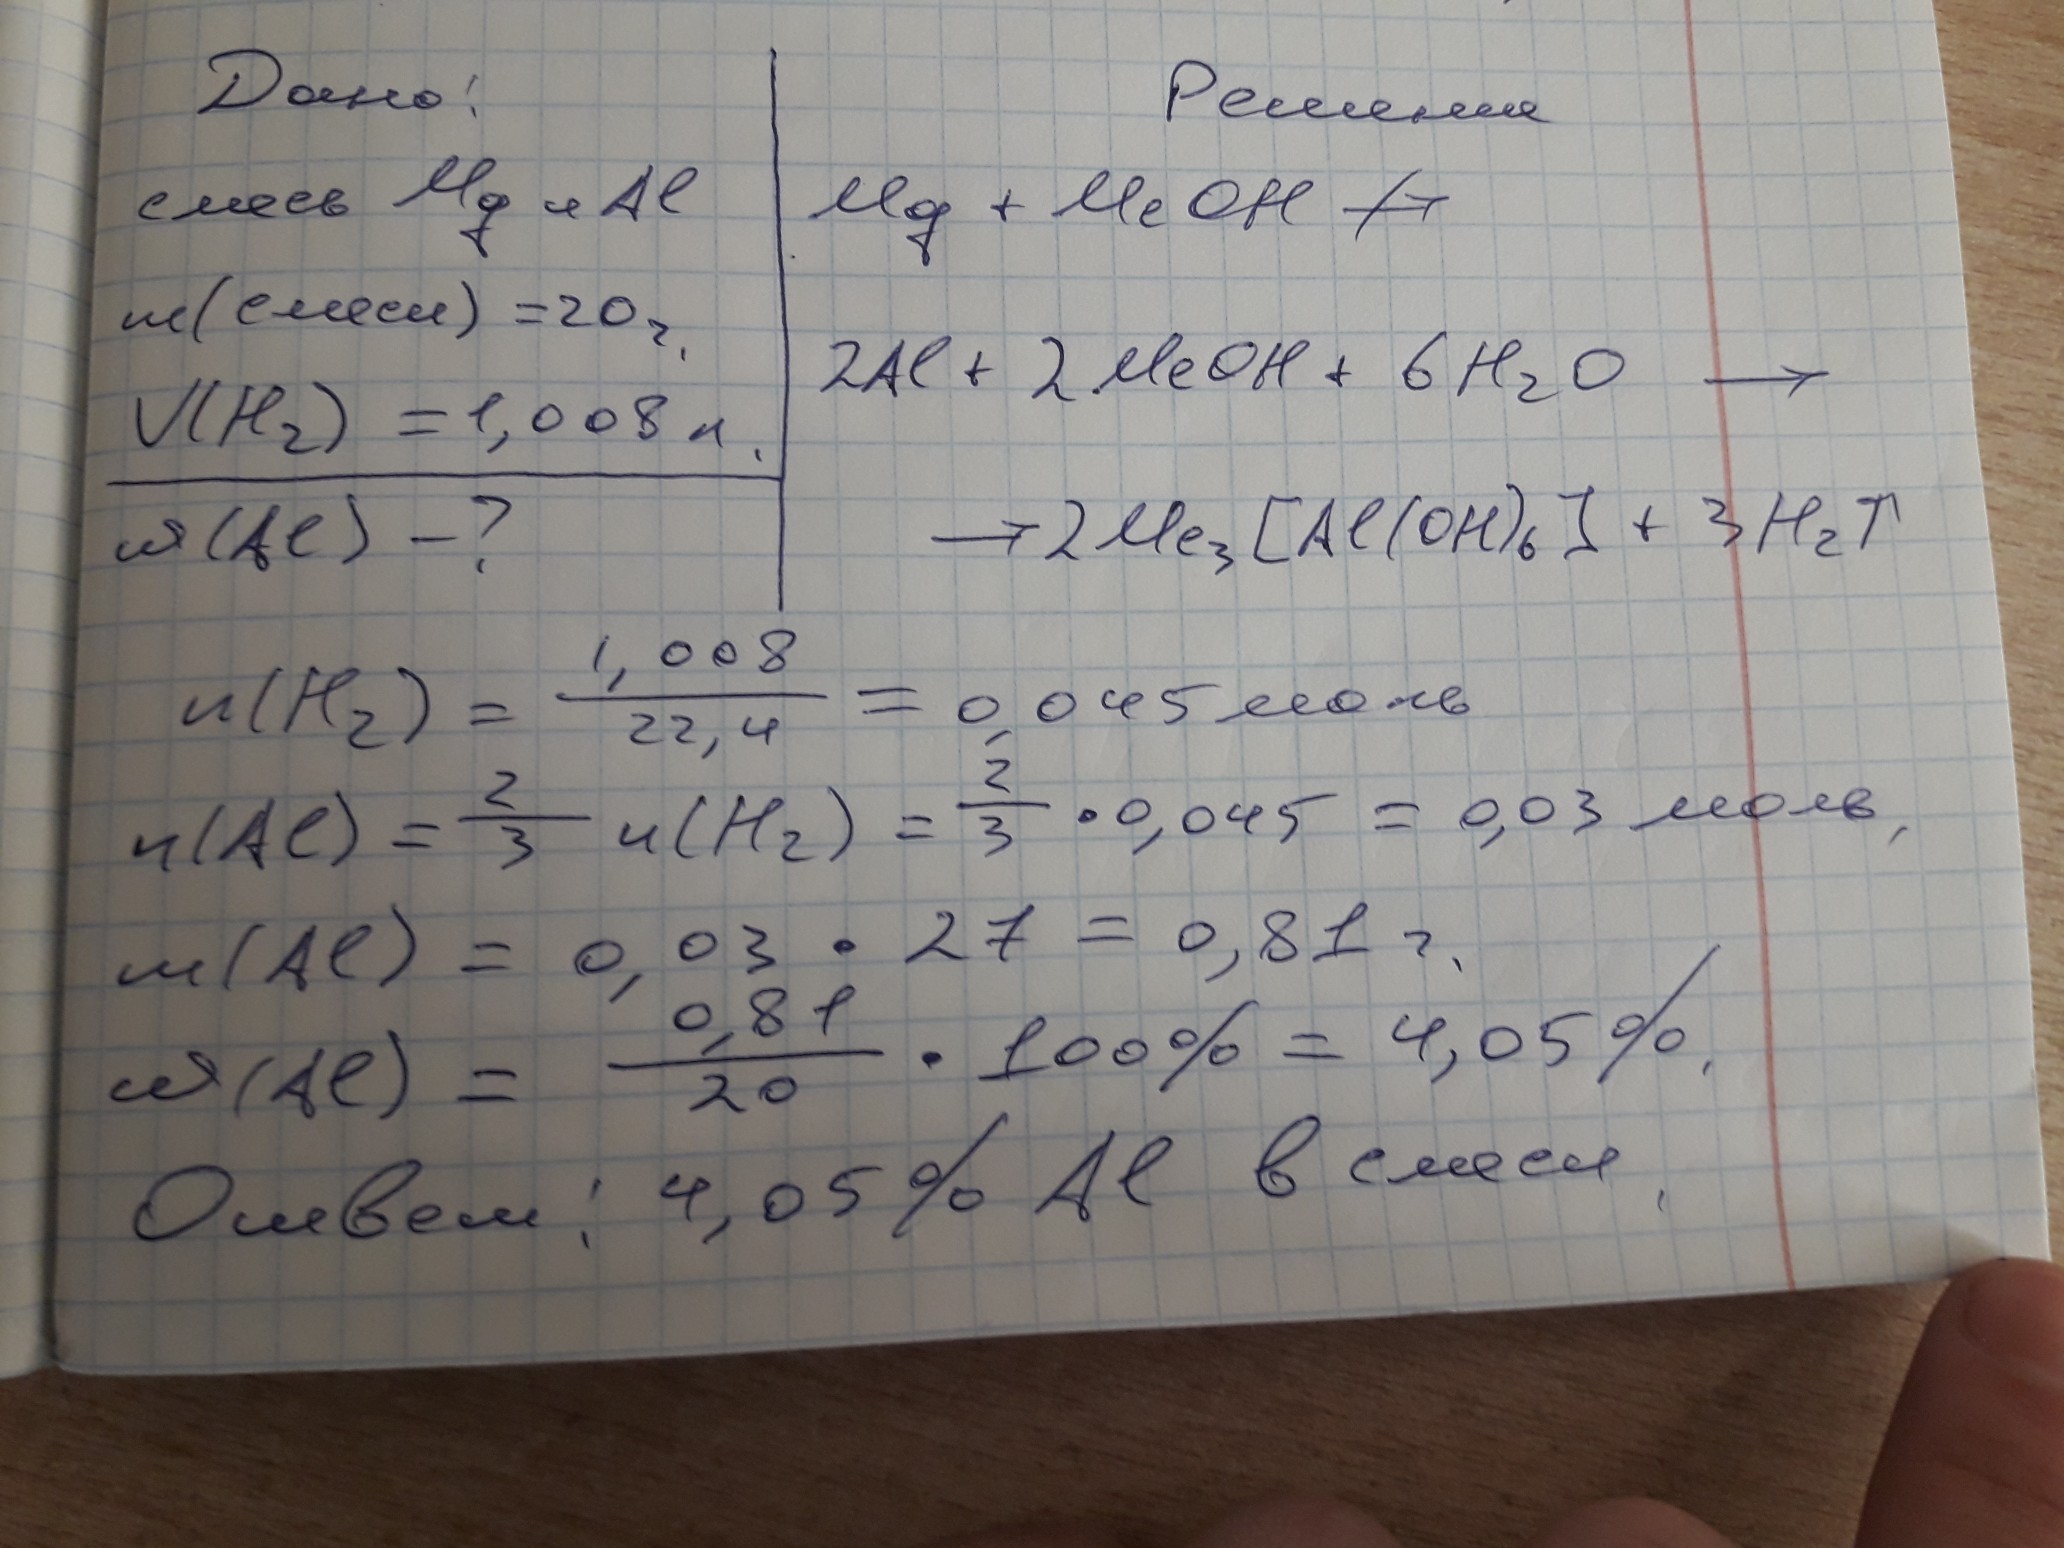 Дано:
смесь Mg и Al
m(смеси) = 20 г.
V(H₂) = 1,008 л.
ω(Al) - ?
Решение
Mg + MeOH ↛
2Al + 2MeOH + 6H₂O →
→ 2Me₃[Al(OH)₆] + 3H₂↑
n(H₂) = 1,008/22,4 = 0,045 моль
n(Al) = 2/3 n(H₂) = 2/3 · 0,045 = 0,03 моль.
m(Al) = 0,03 · 27 = 0,81 г.
ω(Al) = 0,81/20 · 100% = 4,05%.
Ответ: 4,05% Al в смеси.